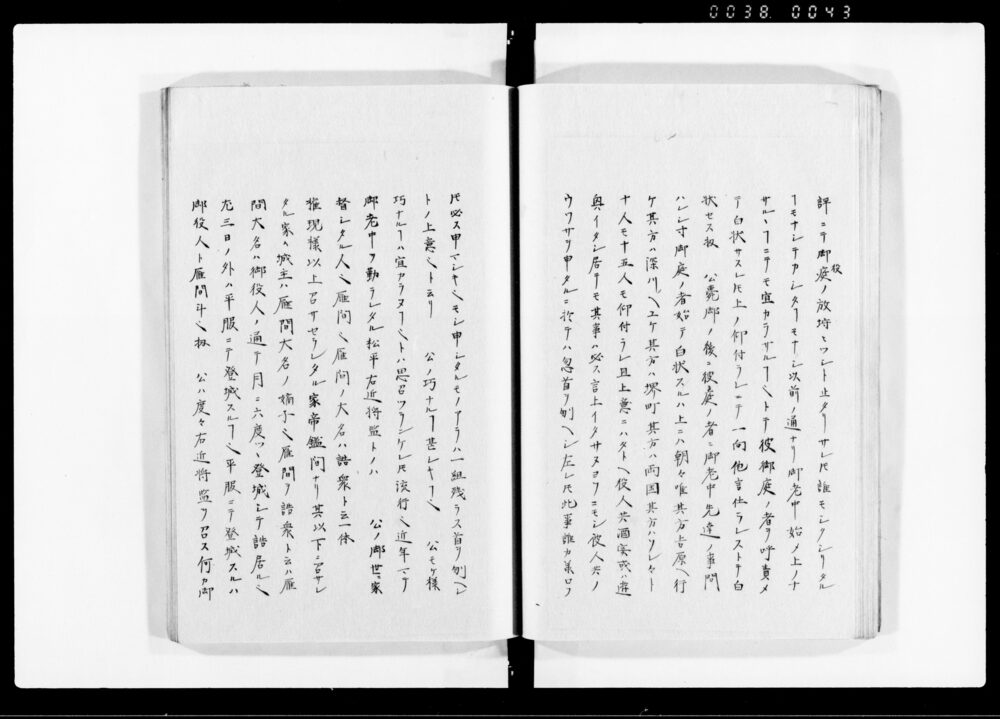 0038. 0043
評ニテ御庭ノ役放埒ミツント止タリサレ𪜈誰モシクジリタル
ヿモナシテカシタヿモナシ以前ノ通ナリ御老中始メ上ノナ
サルヽヿニテモ宜カラサルヿヽトテ彼御庭ノ者ヲ呼責メ
テ白状サスレ𪜈上ノ仰付ラレニテ一向他言仕ラレストテ白
状セス扨 公薨御ノ後ニ彼庭ノ者ニ御老中先達ノ事問
ハレシ寸御庭ノ者始テ白状スルハ上ニハ朝々唯其方吉原ヘ行
ケ其方ハ深川ヘユケ其方ハ堺町其方ハ両国其方ハソレヤト
十人モ十五人モ仰付ラレ且上意ニハタトヘ役人共酒宴或ハ遊
興イタシ居テモ其事ハ必ス言上イタサヌヨウニモシ彼人共ノ
ウワサヲ申タルニ於テハ忽首ヲ刎ヘシ左レ𪜈此事誰カ様ロウ
𪜈必ス申マシキヽモシ申シタルモノアラハ一組残ラス首ヲ刎ヘシ
トノ上意ヽト云リ 公ノ巧ナルヿ甚シキヿヽ 公モケ様
巧ナルヿハ宜カラヌヿヽトハ思召ツランケレ𪜈流行ヽ近年マテ
御老中ヲ勤ラレタル松平右近将監トノハ 公ノ御世ニ家
督シタル人ヽ雁間ヽ雁間ノ大名ハ詰衆ト云一体
権現様以上召サセラレタル家帝鑑間ナリ其以下ニ召サレ
タル家ハ城主ハ雁間大名ノ嫡子ヽ雁間ヲ詰衆ト云ハ雁
間大名ハ御役人ノ通テ月ニ六度ツヽ登城シテ詰居ルヽ
尤三日ノ外ハ平服ニテ登城スルヿヽ平服ニテ登城スルハ
御役人ト雁間斗ヽ扨 公ハ度々右近将監ヲ召ス何カ御